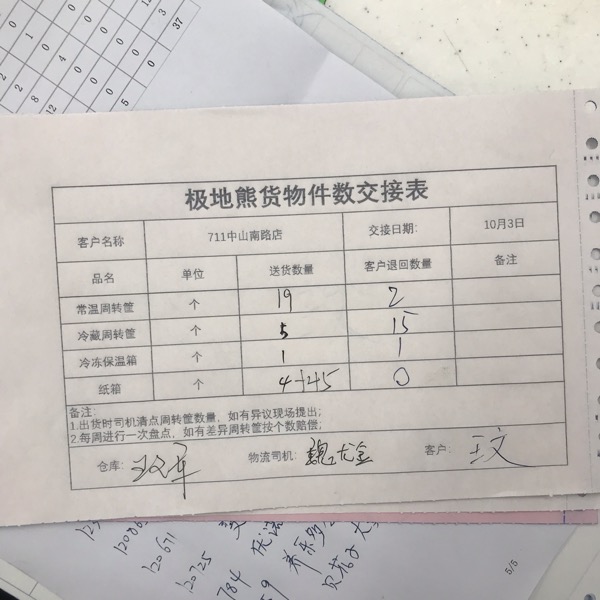 37
极地熊货物件数交接表
客户名称 711中山南路店 交接日期: 10月3日
品名 单位 送货数量 客户退回数量 备注
常温周转筐 个 19 2
冷藏周转筐 个 5 15
冷冻保温箱 个 1 1
纸箱 个 4+45 0
备注:
1.出货时司机清点周转筐数量，如有异议现场提出;
2.每周进行一次盘点，如有差异周转筐按个数赔偿;
仓库: 物流司机: 魏龙金 客户: 王文
120671
120725
784
5/5